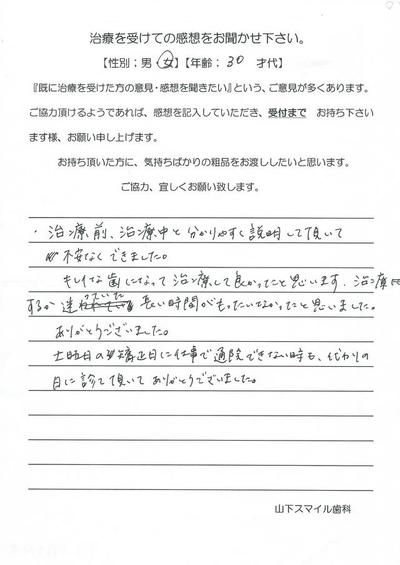 治療を受けての感想をお聞かせ下さい。
【性別：男・女】【年齢：30 才代】
『既に治療を受けた方の意見・感想を聞きたい』という、ご意見が多くあります。
ご協力頂けるようであれば、感想を記入していただき、受付まで お持ち下さい
ます様、お願い申し上げます。
お持ち頂いた方に、気持ちばかりの粗品をお渡ししたいと思います。
ご協力、宜しくお願い致します。
・治療前、治療中と分かりやすく説明して頂いて
不安なくできました。
キレイな歯になって治療して良かったと思います。治療に
するか迷っていた長い時間がもったいなかったと思いました。
ありがとうございました。
土曜日の矯正日に仕事で通院できない時も、代わりの
日に診て頂いてありがとうございました。
山下スマイル歯科